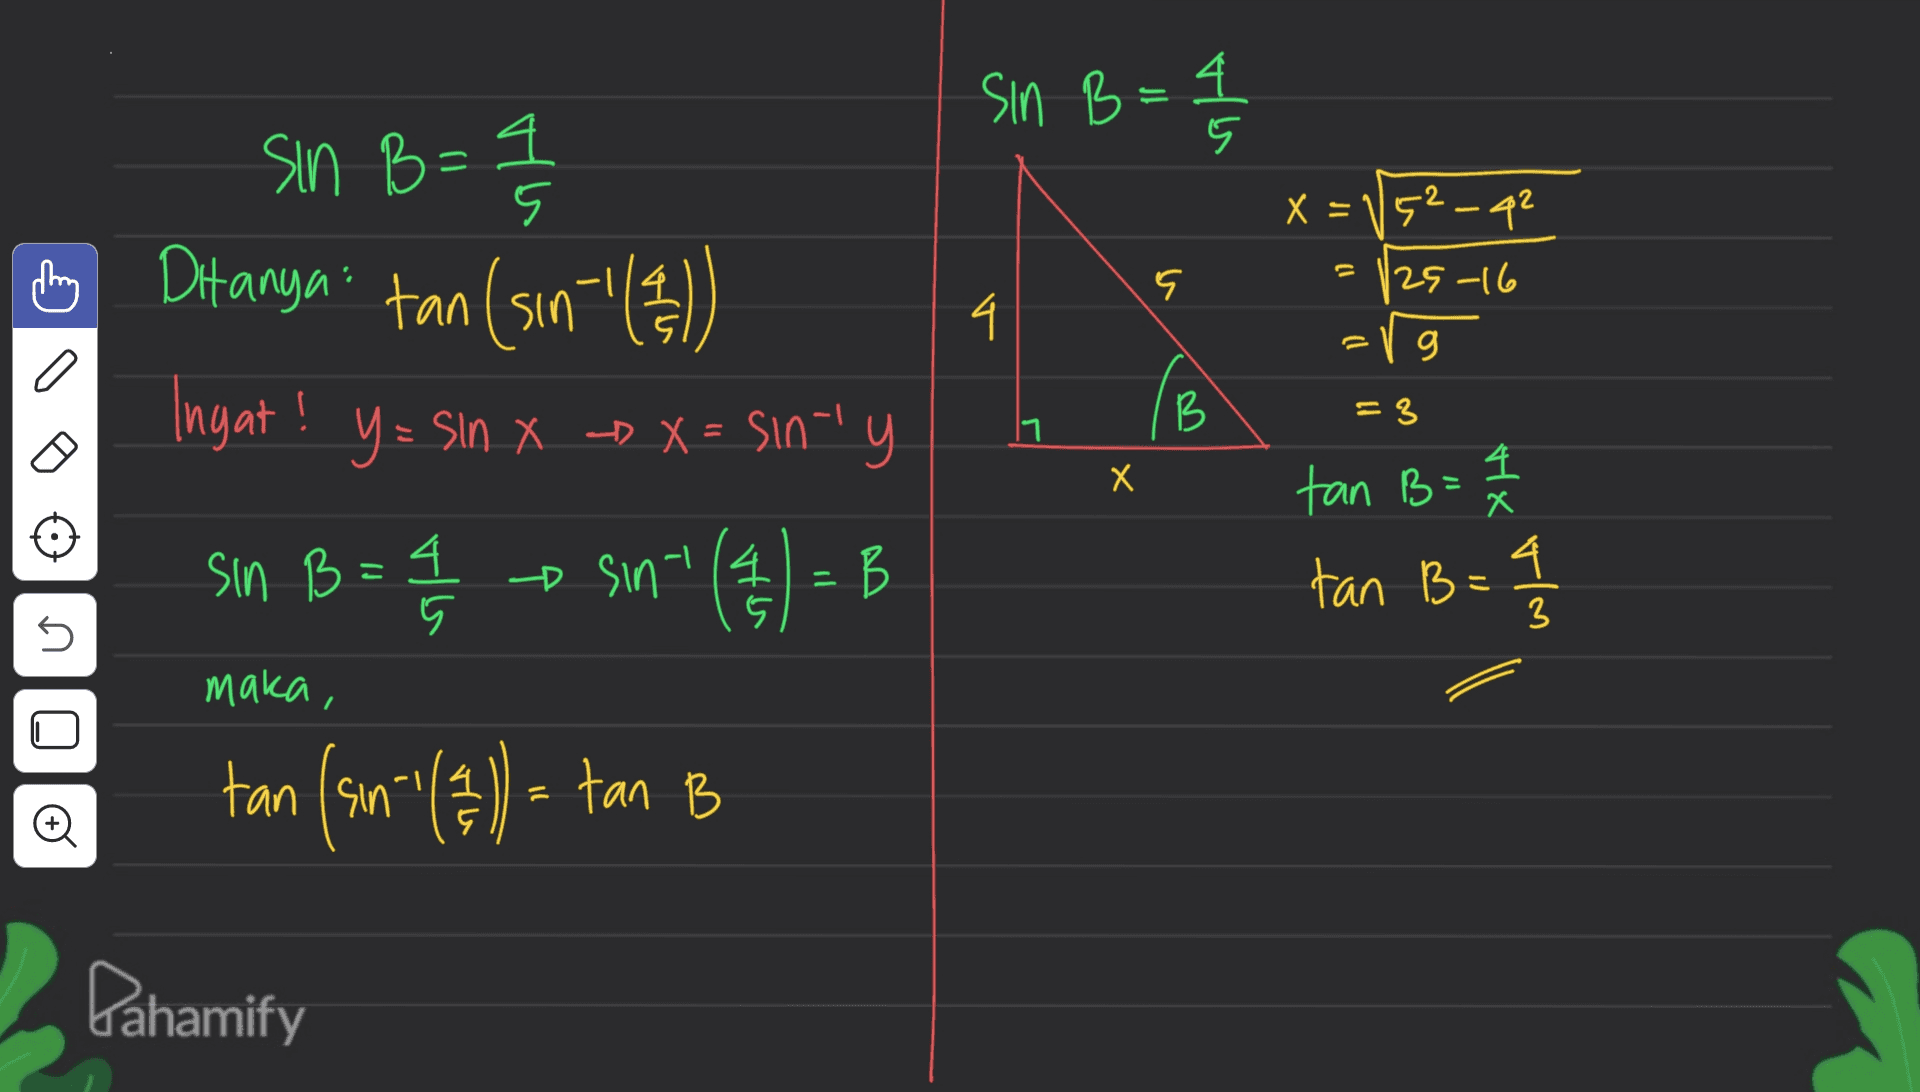 sin B = 4/5
Ditanya: tan (sin⁻¹(4/5))
Ingat! y = sin x → x = sin⁻¹ y
sin B = 4/5 → sin⁻¹ (4/5) = B
maka,
tan (sin⁻¹(4/5)) = tan B
sin B = 4/5
4
5
B
x
x = √5² - 4²
= √25 - 16
= √9
= 3
tan B = 4/x
tan B = 4/3
Pahamify